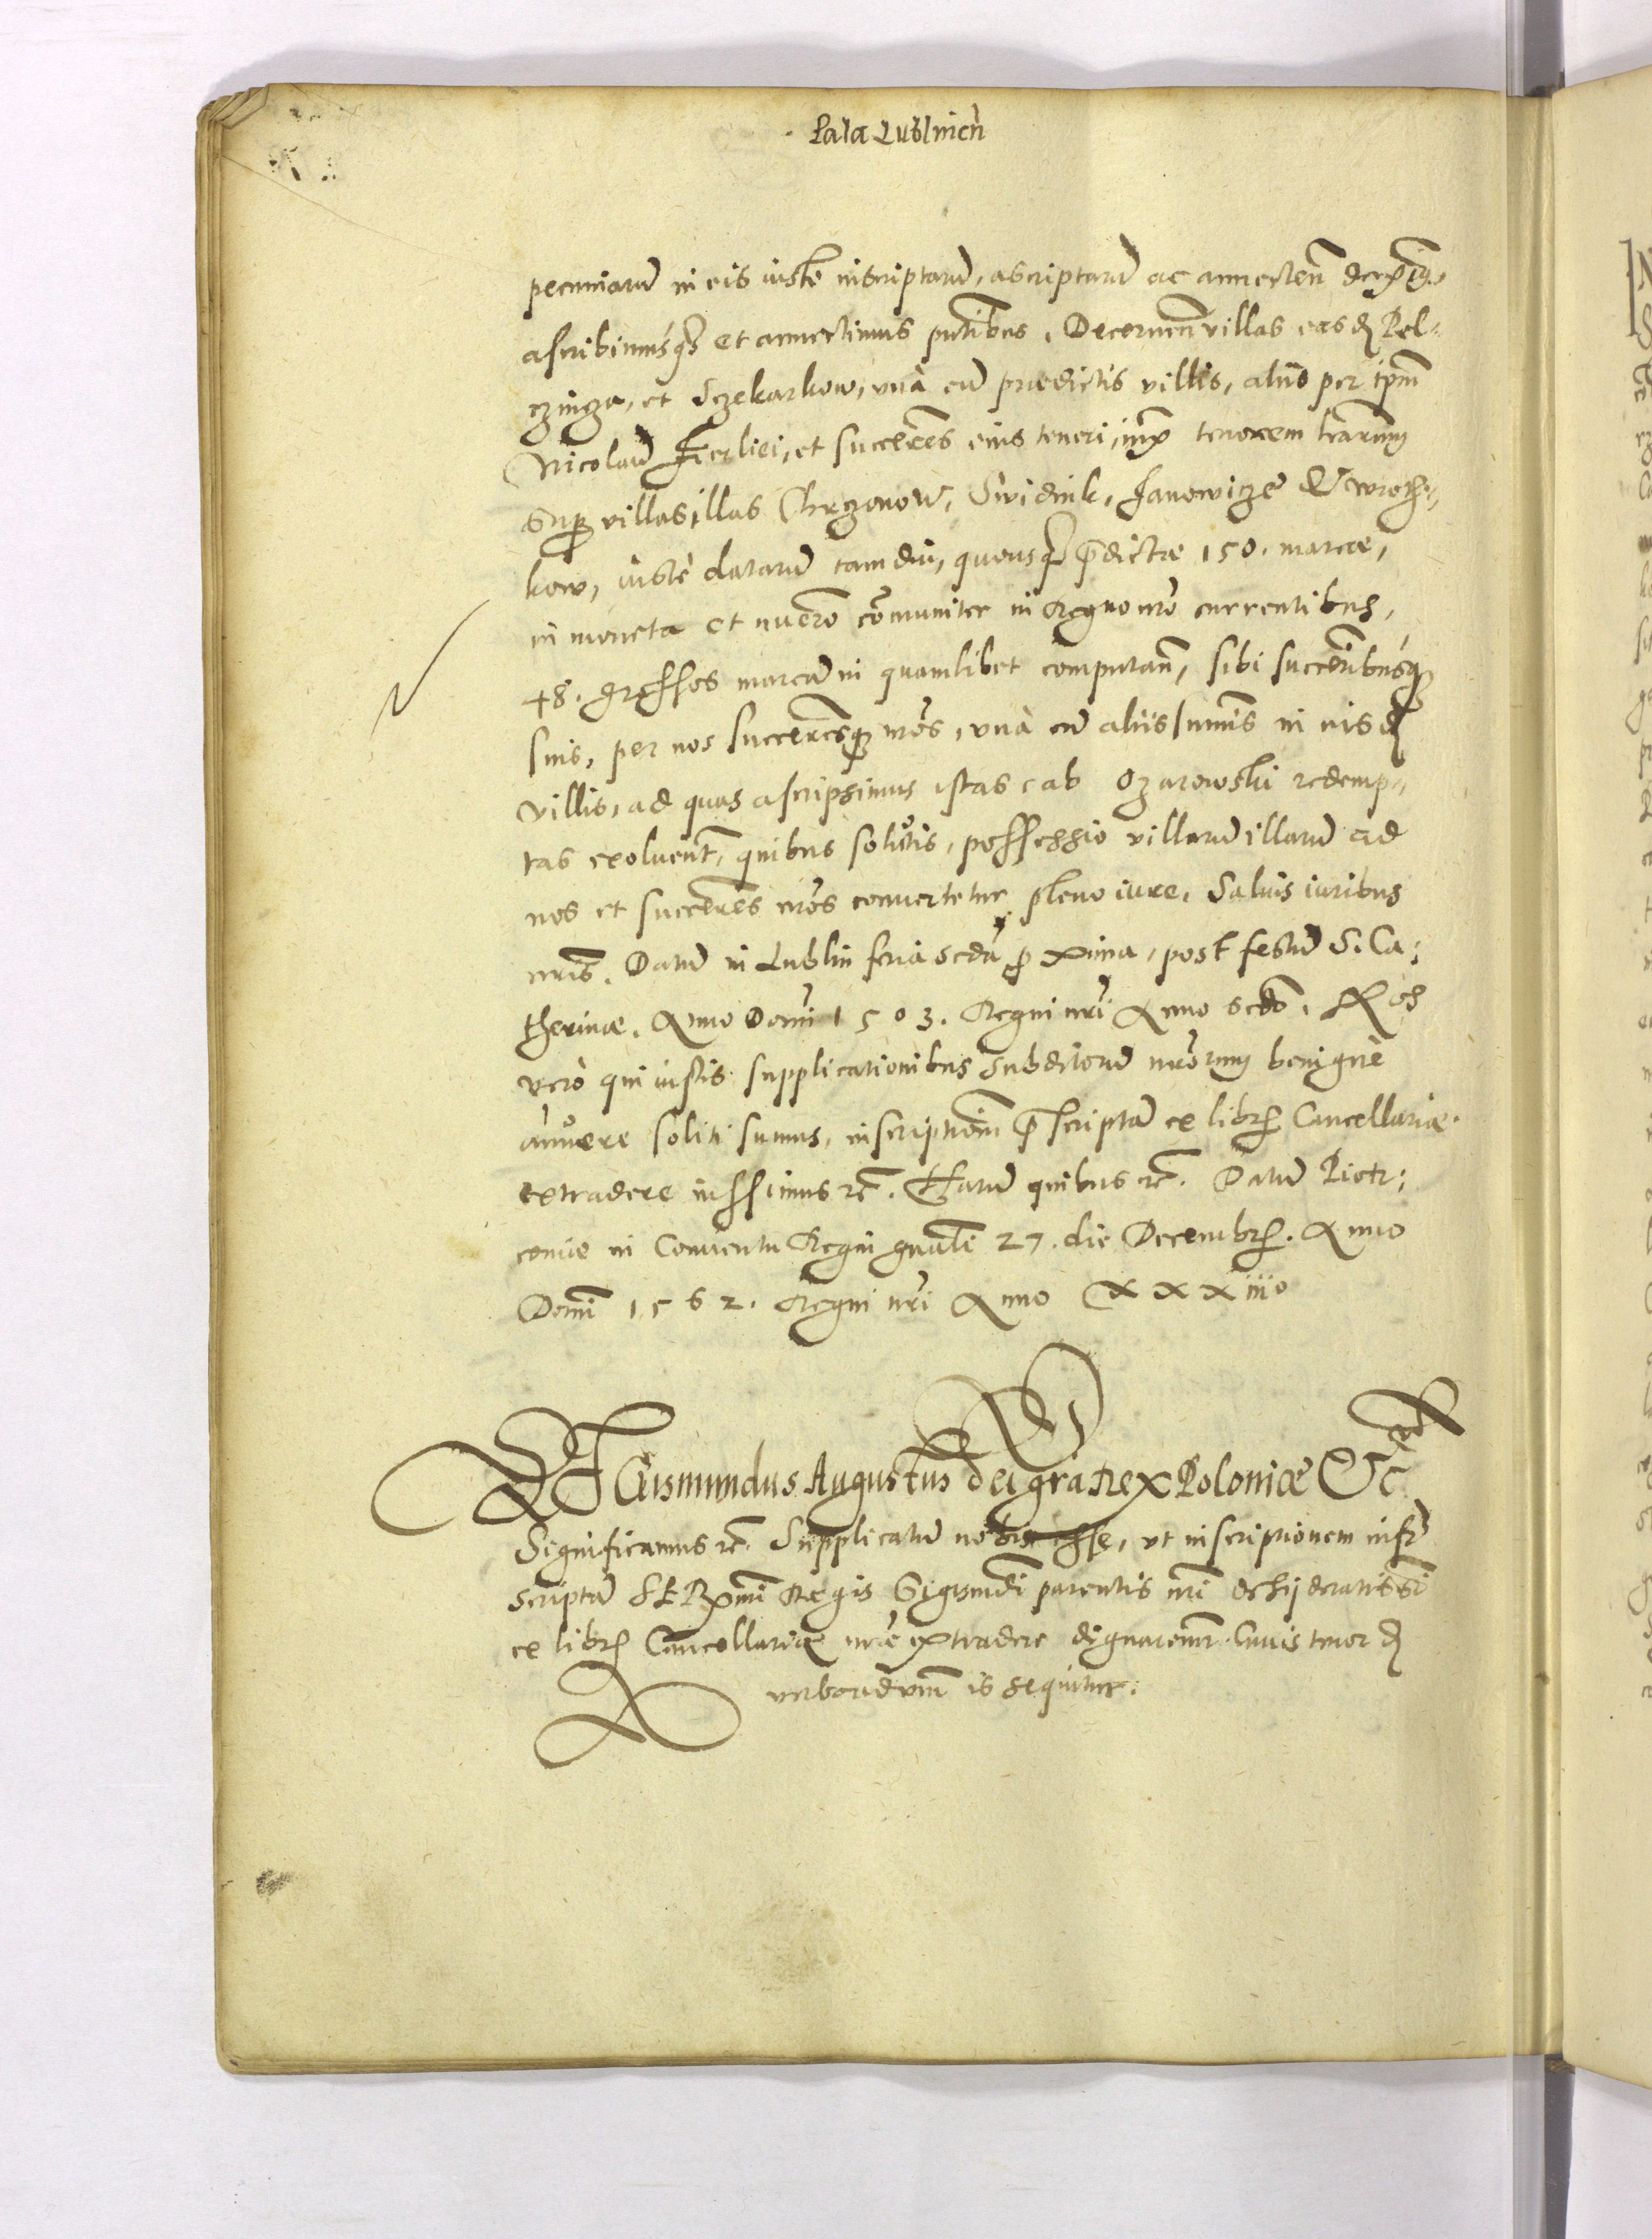 Pala Lublnicń
pecuniarū in eis iuste inscriptarū, ascriptarū ac annecten̄
ascribimusq́ꝫ et annectimus pn̄tibus. Decernen̄ villas easd̄ Pel-
czincza, et Sczekarkow, vnà cū praedictis villis, alijs per ip̄m
Nicolaū Firliei, et succeres̄ eius teneri, iux̄ tenorem lrārum
sup̱ villas illas Chrzonow, Swidnik, Janowicze & Wroth-
kow, iustè datarū tamdiu, quousq̄ p̄dictae 150. marcae,
in moneta et nuero cōmuniter in Regno nro̅ currentibus,
48. grossos marcā in quamlibet computan̄, sibi succeribusq́ꝫ
suis, per nos succeresq́ꝫ nr̄os, vnà cū alijs sumis in eisd̄
villis, ad quas ascripsimus istas ab Ozarowski redemp-
tas exoluent̄, quibus solutis, possessio villarū illarū ad
nos et succeres nr̄os conuertetur pleno iure. Saluis iuribus
nr̄is. Datū in Lublin feria scda̅ p̱xima, post festū S. Ca:
therinae. Anno Domi̅ 1503. Regni nr̄i Anno scdo̅. Nos
verò qui iustis supplicationibus subditorū nr̄orum benignè
annuere soliti sumus, inscriptioem̅ p̄scriptā ex libr̄ Cancellariae
extradere iussimus rc̄. Harū quibus rc̄. Datū Piotr:
couiae in Conuentu Regni gnāli 27. die Decembr̄. Anno
Domi̅ 1562. Regni nr̄i Anno XXXiiio
Sigismundus Augustus dei gra̅ Rex Poloniae &c
Significamus rc̄. Supplicatū nobis esse, vt inscriptionem infr̄
scriptā Regis Sigismūdi parentis nr̄i desijderatissi̅
ex libr̄ Cancellariae nr̄ae extradere dignaremur. Cuius tenor d̄
verbo ad verbū is sequitur: